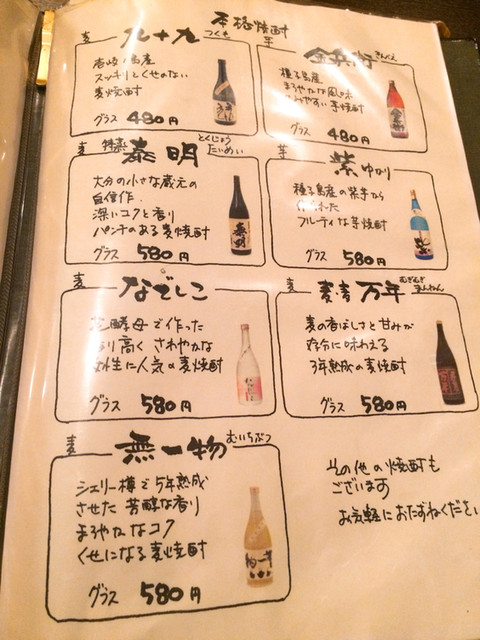 本格焼酎
麦 九十九 つくも
壱岐の島産
スッキリとくせのない
麦焼酎
グラス 480円
芋 金兵衛 きんべえ
種子島産
まろやかな風味
みやすい芋焼酎
グラス 480円
麦 特蒸 泰明 とくじょう たいめい
大分の小さな蔵元の
自信作.
深いコクと香り
パンチのある麦焼酎
グラス 580円
芋 紫 ゆかり
種子島産の紫芋から
作られた
フルーティな芋焼酎
グラス 580円
麦 なでしこ
花酵母で作った
香り高く さわやかな
女性に人気の麦焼酎
グラス 580円
麦 麦麦万年 むぎむぎ まんねん
麦の香ばしさと甘みが
存分に味わえる
3年熟成の麦焼酎
グラス 580円
麦 無一物 むいちぶつ
シェリー樽で5年熟成
させた 芳醇な香り
まろやかなコク
くせになる麦焼酎
グラス 580円
その他の焼酎も
ございます
お気軽におたずねください